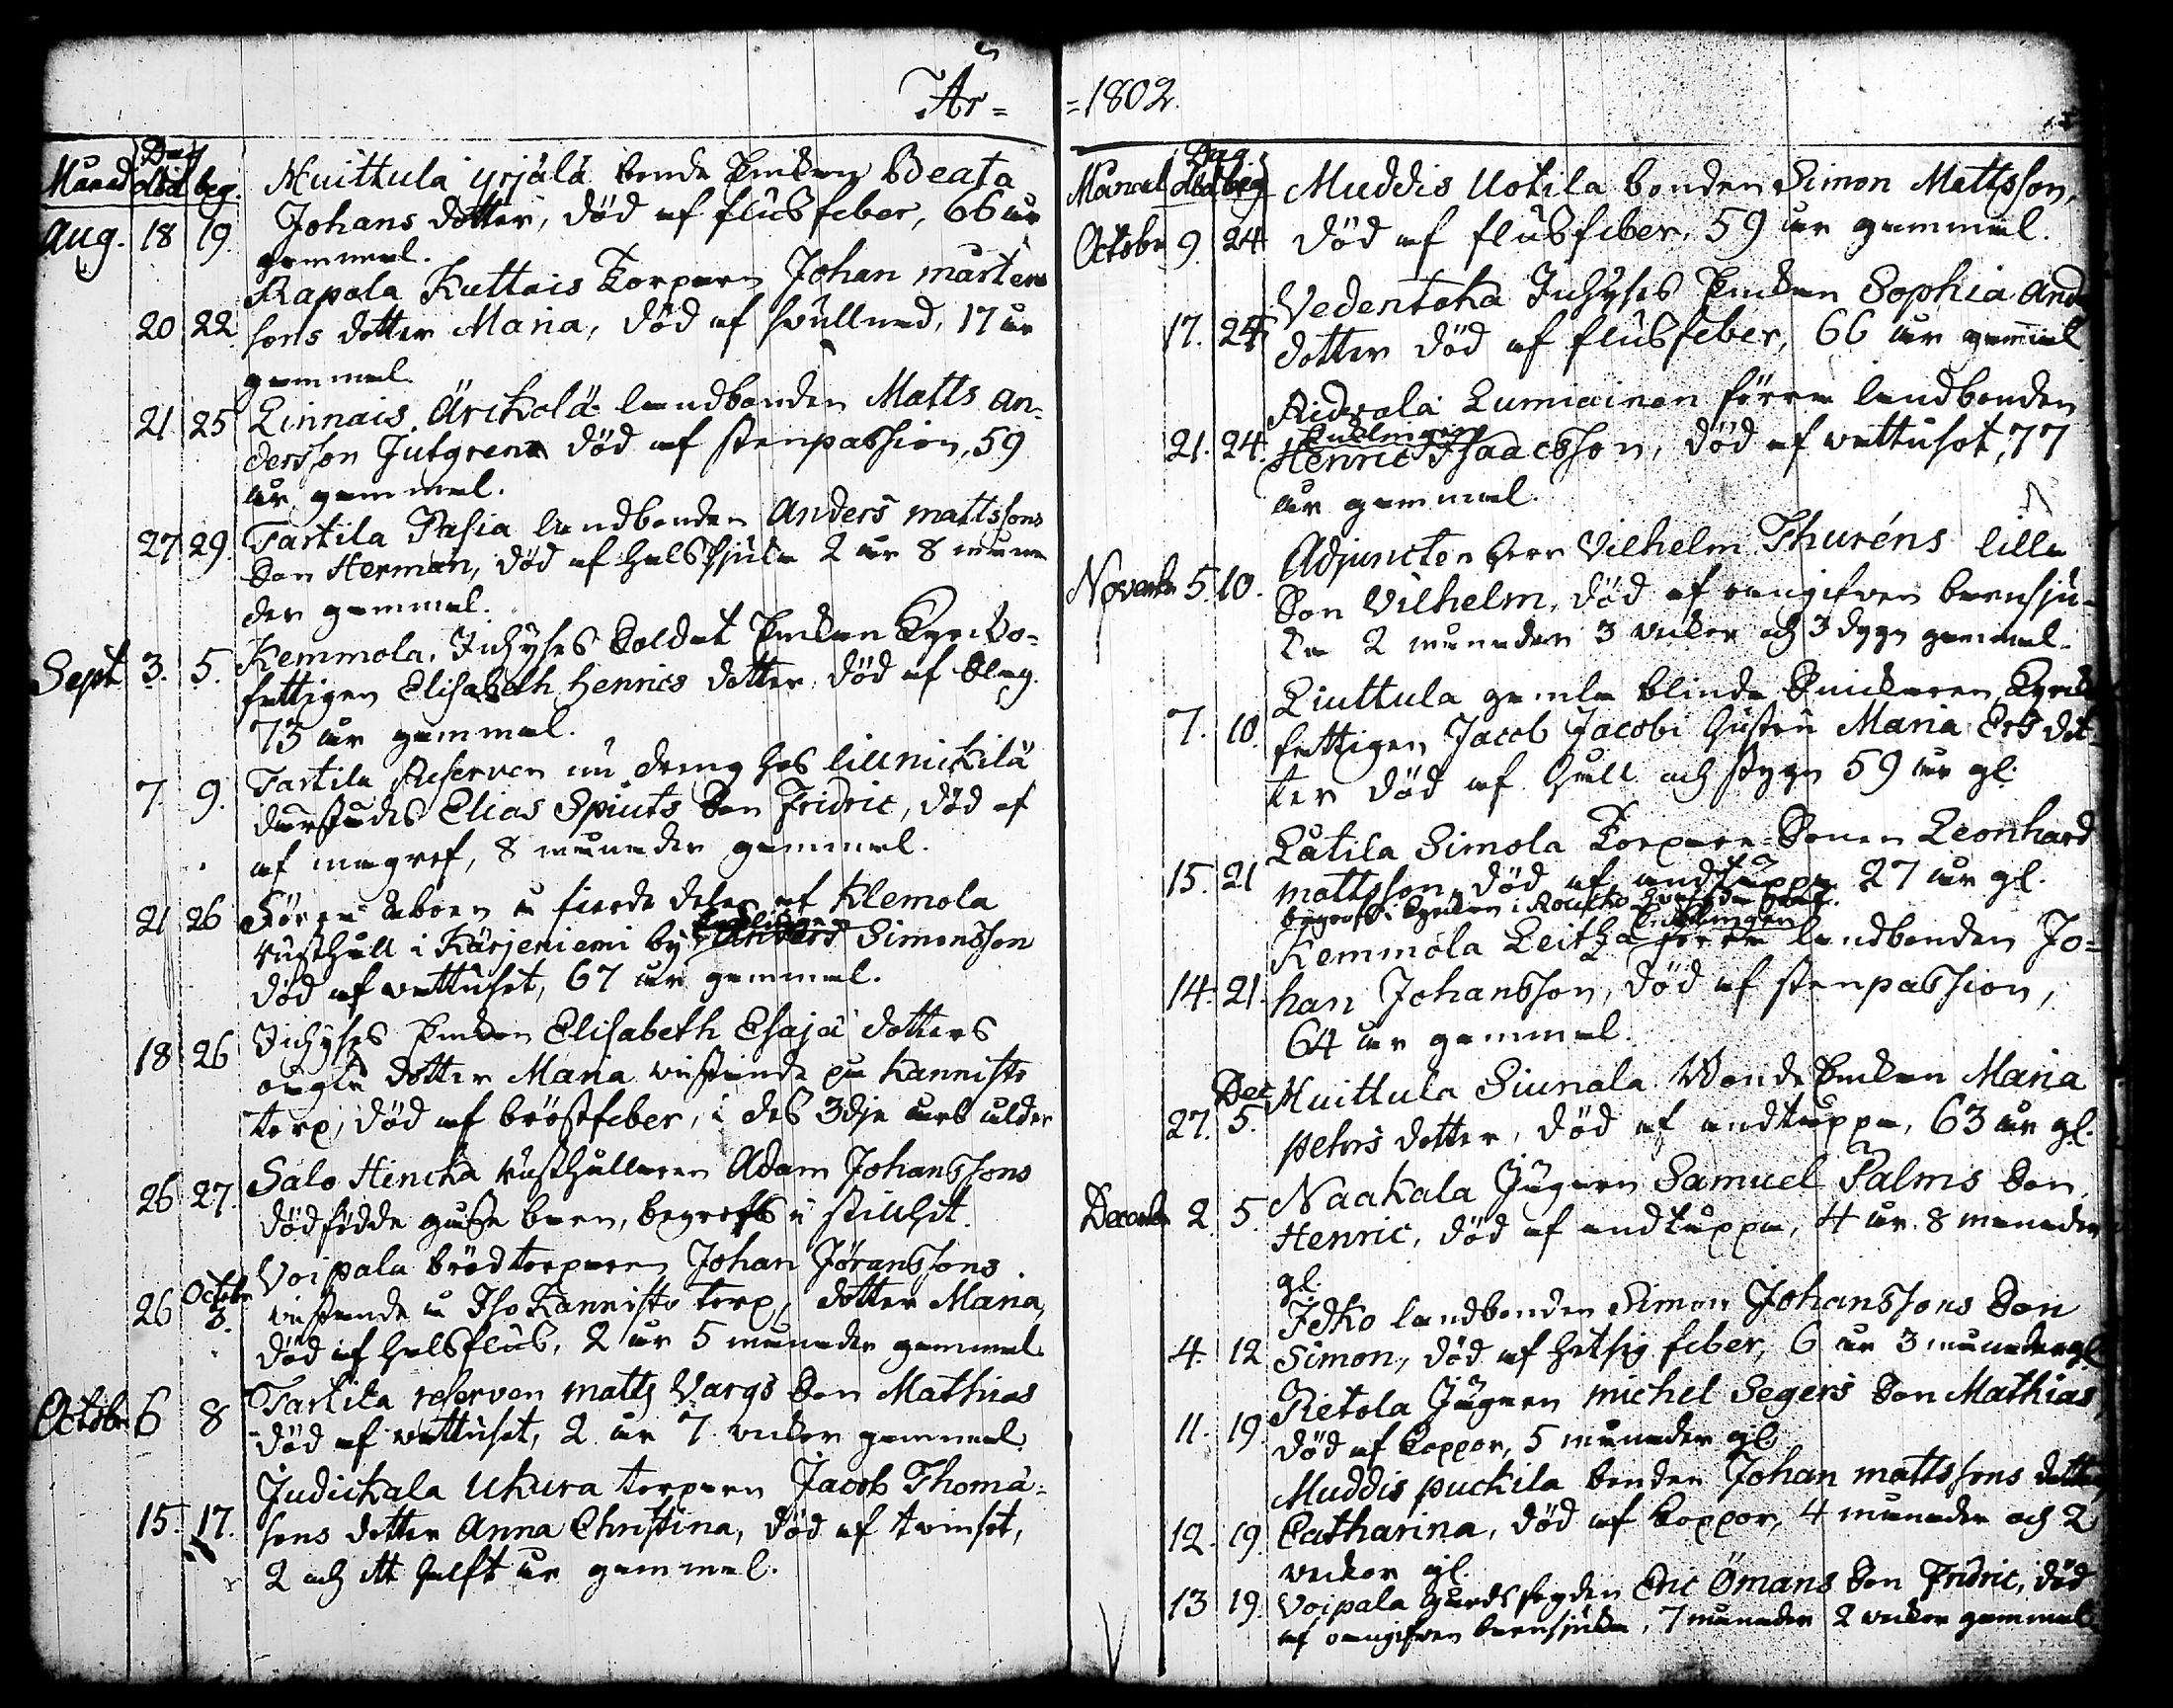 År =
Månad död beg.
Dag
Muittula yrjälä bonde Enckan Beata
Aug. 18 19. Johans dotter, död af flusfeber, 66 år
gammal.
Rapola Kuttais Torparen Johan mårtens
20 22 sons dotter Maria, död af svullnad, 17 år
gammal.
21 25 Linnais Ärickolä landbonden Matts An-
dersson Jutgren död af stenpassion, 59
år gammal.
27 29. Tartila Pasia landbonden Anders mattssons
Son Herman, död af halssjuka 2 år 8 måna
der gammal.
Kemmola, Ichyses Soldat Enckan Kyrcko=
Sept 3. 5. fattigen Elisabeth henrics dotter, död af Slag.
73 år gammal.
7. 9. Tartila Reserven nu dreng hos lillnickilä
Elias Spiuts Son Fridric, död af
af magref, 8 månader gammal.
21 26 Förra åboen å fierde delen af Klemola
rusthåll i Kärjeniemi by Simonsson
död af vattusot, 67 år gammal.
18 26 Ichyses Enckan Elisabeth Esajæ dotters
oägta dotter Maria vistande på Kannisto
torp, död af bröstfeber, i des 3dje års ålder
26 27. Salo Hencka rusthållaren Adam Johanssons
dödfödde gosse barn, begrofs i stillhet.
Voipala brödtorparen Johan Jöranssons
26 Octobr 3. vistande å Iso Kannisto torp, dotter Maria,
död af halsflus, 2 år 5 månader gammal
Octobr 6 8 Tartila reserven matts Vargs Son Mathias
död af vattusot, 2 år 7 veckor gammal.
Judickala Ukura torparen Jacob Thomæ=
15. 17. sons dotter Anna Christina, död af tvinsot,
2 och ett halft år gammal.
= 1802.
Månad död beg
Dag.
Muddis Uotila bonden Simon Mattsson,
Octobr 9. 24 död af flusfeber, 59 år gammal.
Vedentaka Ichyses Enckan Sophia And
17. 24 dotter död af flusfeber, 66 år gammal
Ridvala Lumiainen förra landbonden
Enklingen
21. 24. Henric Isaacsson, död af vattusot, 77
år gammal.
Adjuncten Herr Vilhelm Thuréns lilla
Novembr 5. 10. Son Vilhelm, död af oangifven barnsju-
ka 2 månader 3 veckor och 3 dygn gammal.
Liuttula gamla blinda Snickaren Kyrcko
7. 10. fattigen Jacob Jacobs hustru Maria Ers dot-
ter död af håll och styng 59 år gl.
Låtila Simola Torpare Sonen Leonhard
15. 21 mattsson, död af andtäppa 27 år gl.
Enklingen
Kemmola Leitza förra landbonden Jo=
14. 21. han Johansson, död af stenpassion,
64 år gammal.
Dec Muittula Siunala Bonde Enckan Maria
27. 5. pehrs dotter, död af andtäppa, 63 år gl.
Naakala Jägaren Samuel Palms Son
Decembr 2. 5. Henric, död af andtäppa, 4 år 8 månader
gl.
Idko landbonden Simon Johanssons Son
4. 12 Simon, död af hetsig feber, 6 år 3 månader gl
Rietola Jägaren michel Segers Son Mathias,
11. 19. död af Koppor, 5 månader gl.
Muddis puckila bonden Johan mattssons dotter
12. 19. Catharina, död af Koppor, 4 månader och 2
veckor gl.
13 19. Voipala gårds fogden Eric Ömans Son Fridric, död
af oangifven barnsjuka, 7 månader 2 veckor gammal.